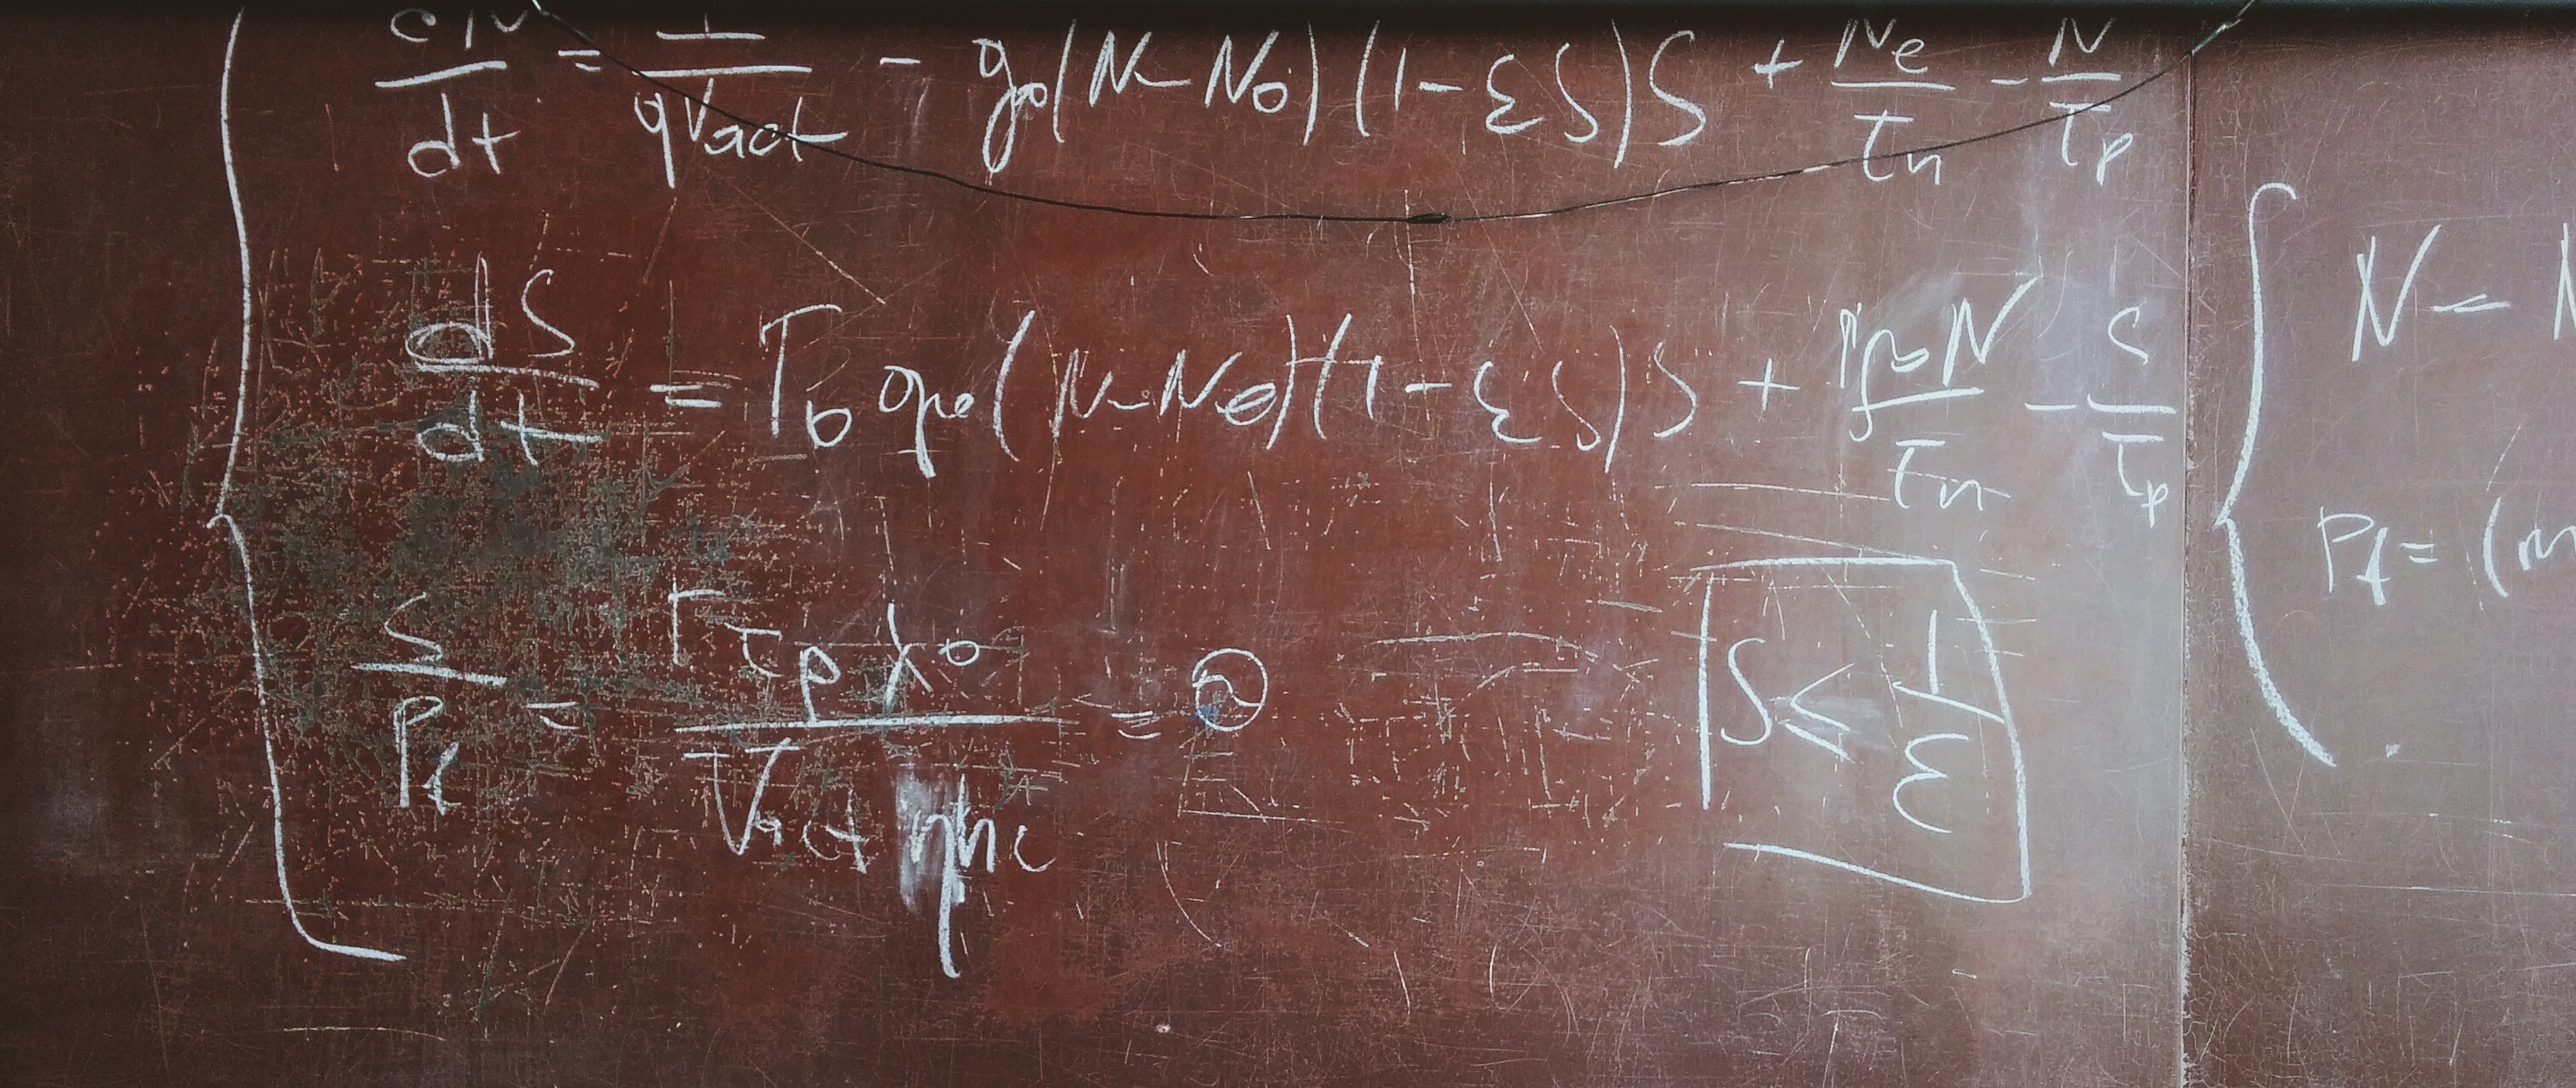 dN/dt = I/qVact - g₀(N-N₀)(1-εS)S + Ne/τn - N/τp
dS/dt = Γ₀ g₀(N-N₀)(1-εS)S + Γβ₀N/τn - S/τp
S/Pf = Γτpλ₀/Vact ηhc = ϑ
S ≤ 1/ε
N -
Pf = (m